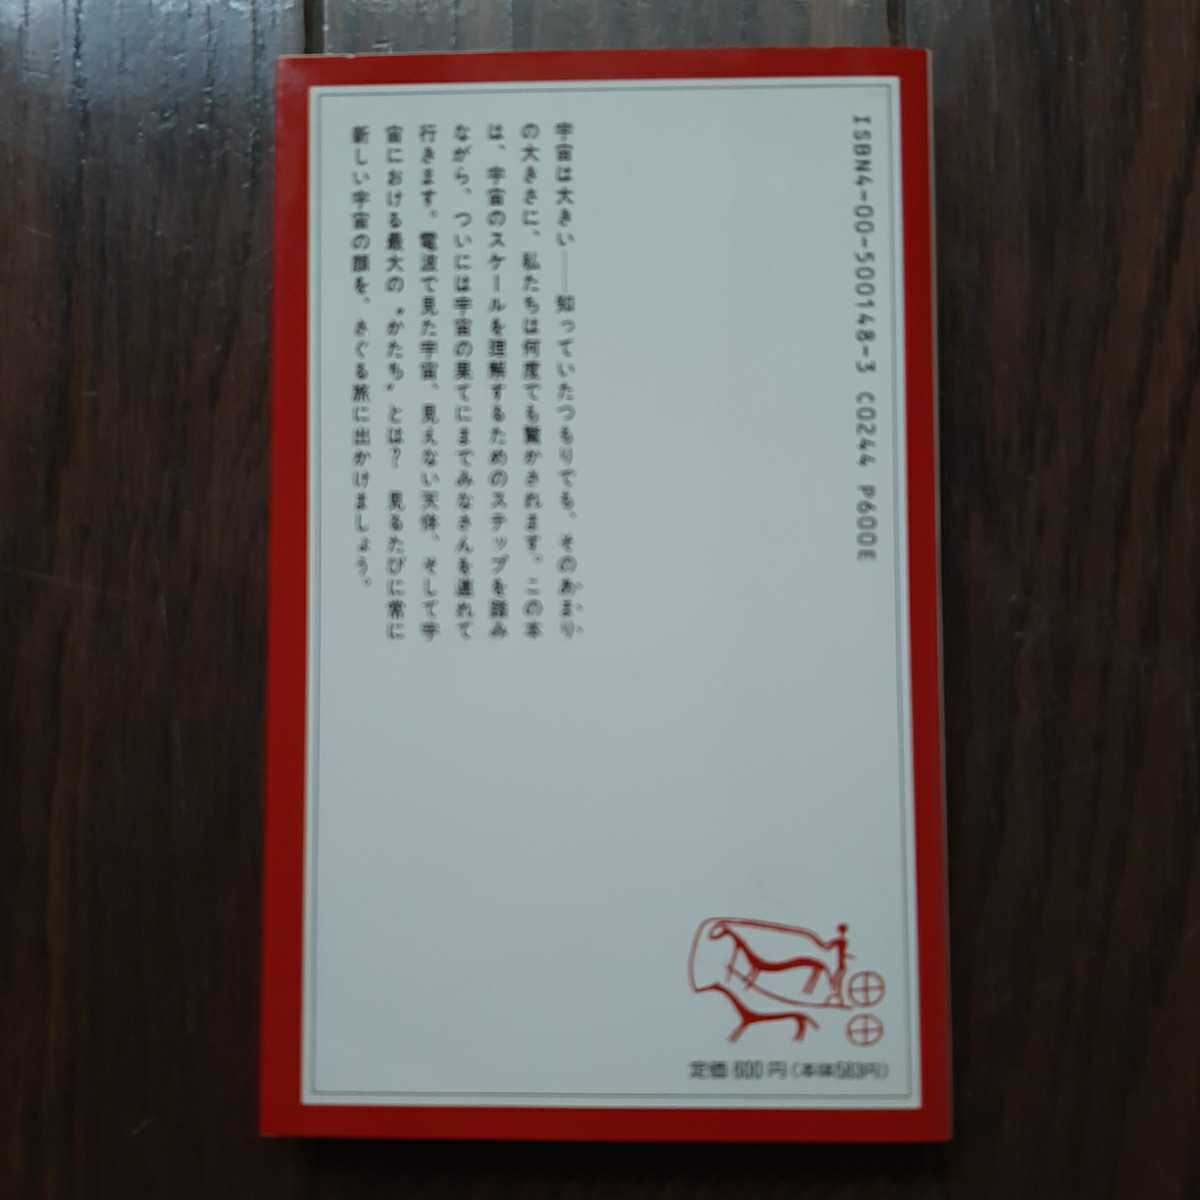 ISBN4-00-500148-3 C0244 P600E
宇宙は大きい――知っていたつもりでも、そのあまり
の大きさに、私たちは何度でも驚かされます。この本
は、宇宙のスケールを理解するためのステップを踏み
ながら、ついには宇宙の果てにまでみなさんを連れて
行きます。電波で見た宇宙、見えない天体、そして宇
宙における最大の〝かたち〟とは？　見るたびに常に
新しい宇宙の顔を、さぐる旅に出かけましょう。
定価600円（本体583円）